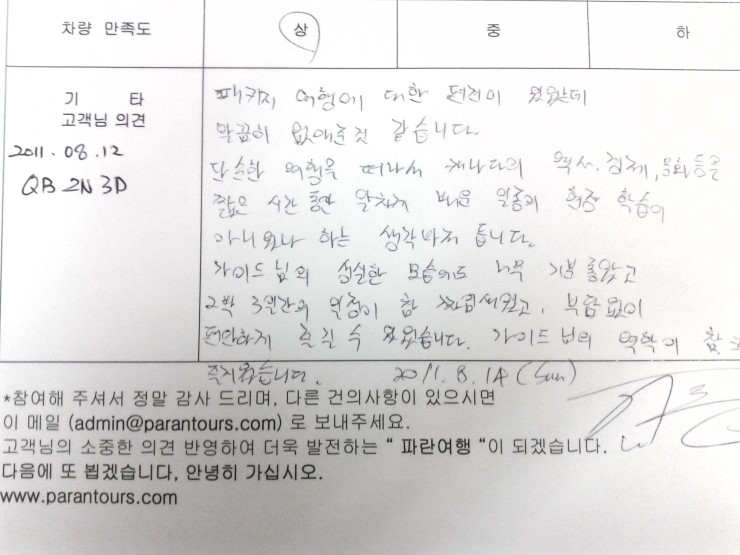 차량 만족도 상 중 하
기 타
고객님 의견
2011. 08. 12
QB 2N 3D
패키지 여행에 대한 편견이 있었는데
말끔히 없애준것 같습니다.
단순한 여행을 떠나서 캐나다의 역사, 경제, 문화등을
짧은 시간 동안 알차게 배운 일종의 현장 학습이
아니었나 하는 생각마저 듭니다.
가이드님의 성실한 모습에도 너무 기분 좋았고
2박 3일간의 일정이 참 알찼었고, 부담 없이
편안하게 즐길 수 있었습니다. 가이드님의 역할이 참
즐거웠습니다. 2011. 8. 14 (Sun)
*참여해 주셔서 정말 감사 드리며, 다른 건의사항이 있으시면
이 메일 (admin@parantours.com) 로 보내주세요.
고객님의 소중한 의견 반영하여 더욱 발전하는 “ 파란여행 “이 되겠습니다.
다음에 또 뵙겠습니다, 안녕히 가십시오.
www.parantours.com